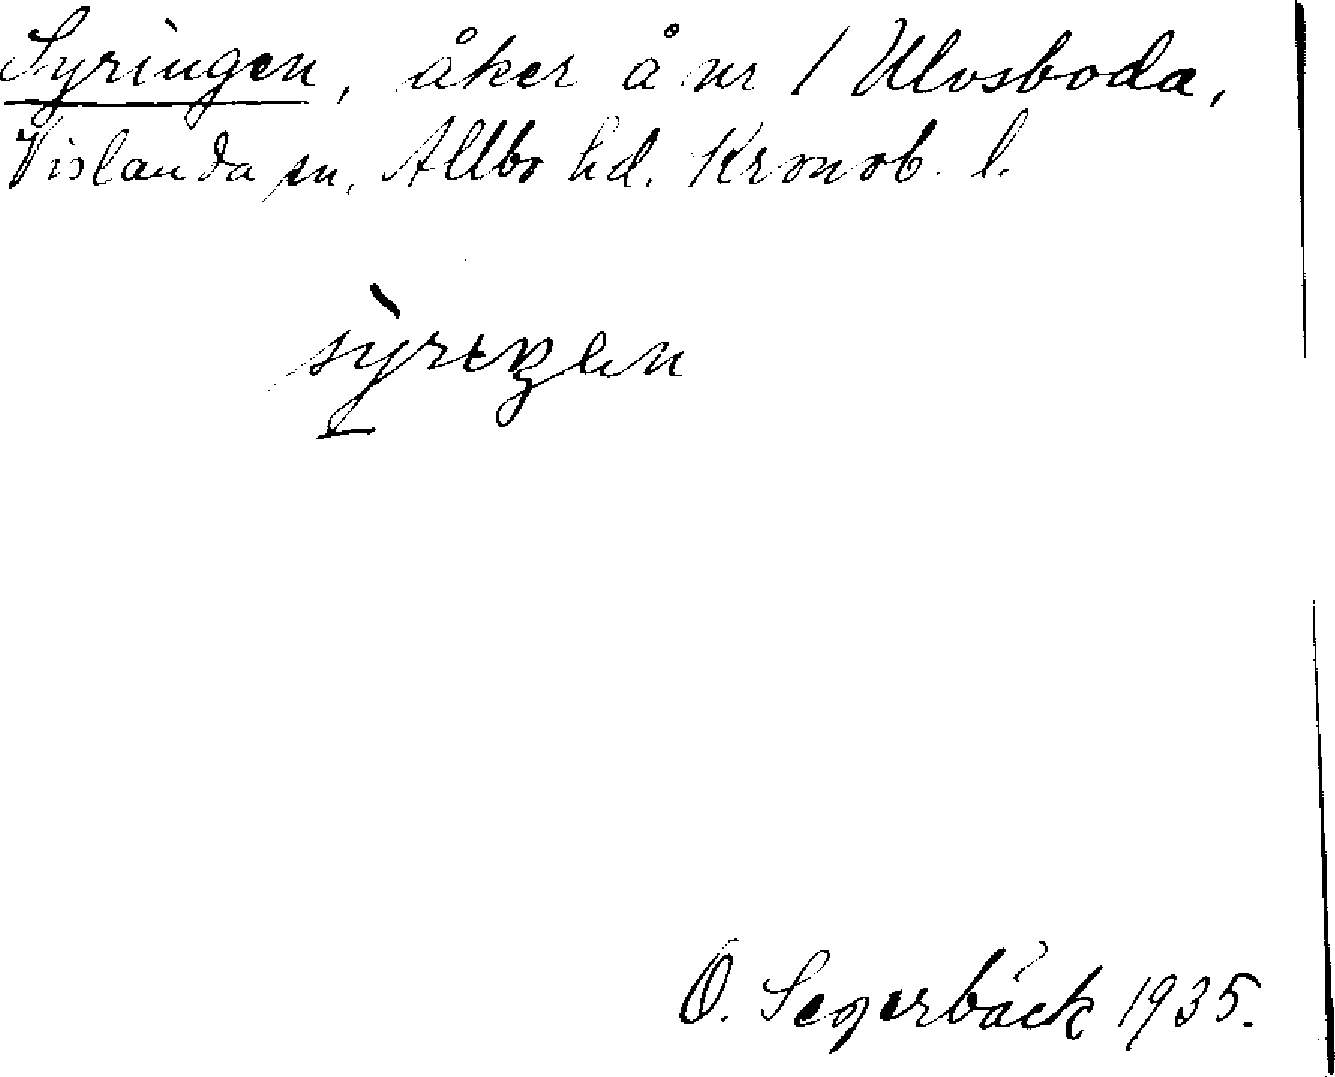 Syringen, åker å nr 1 Ulvsboda,
Vislanda sn, Allbo hd. Kronob. l.
sỳrɩŋən
O. Segerbäck 1935.